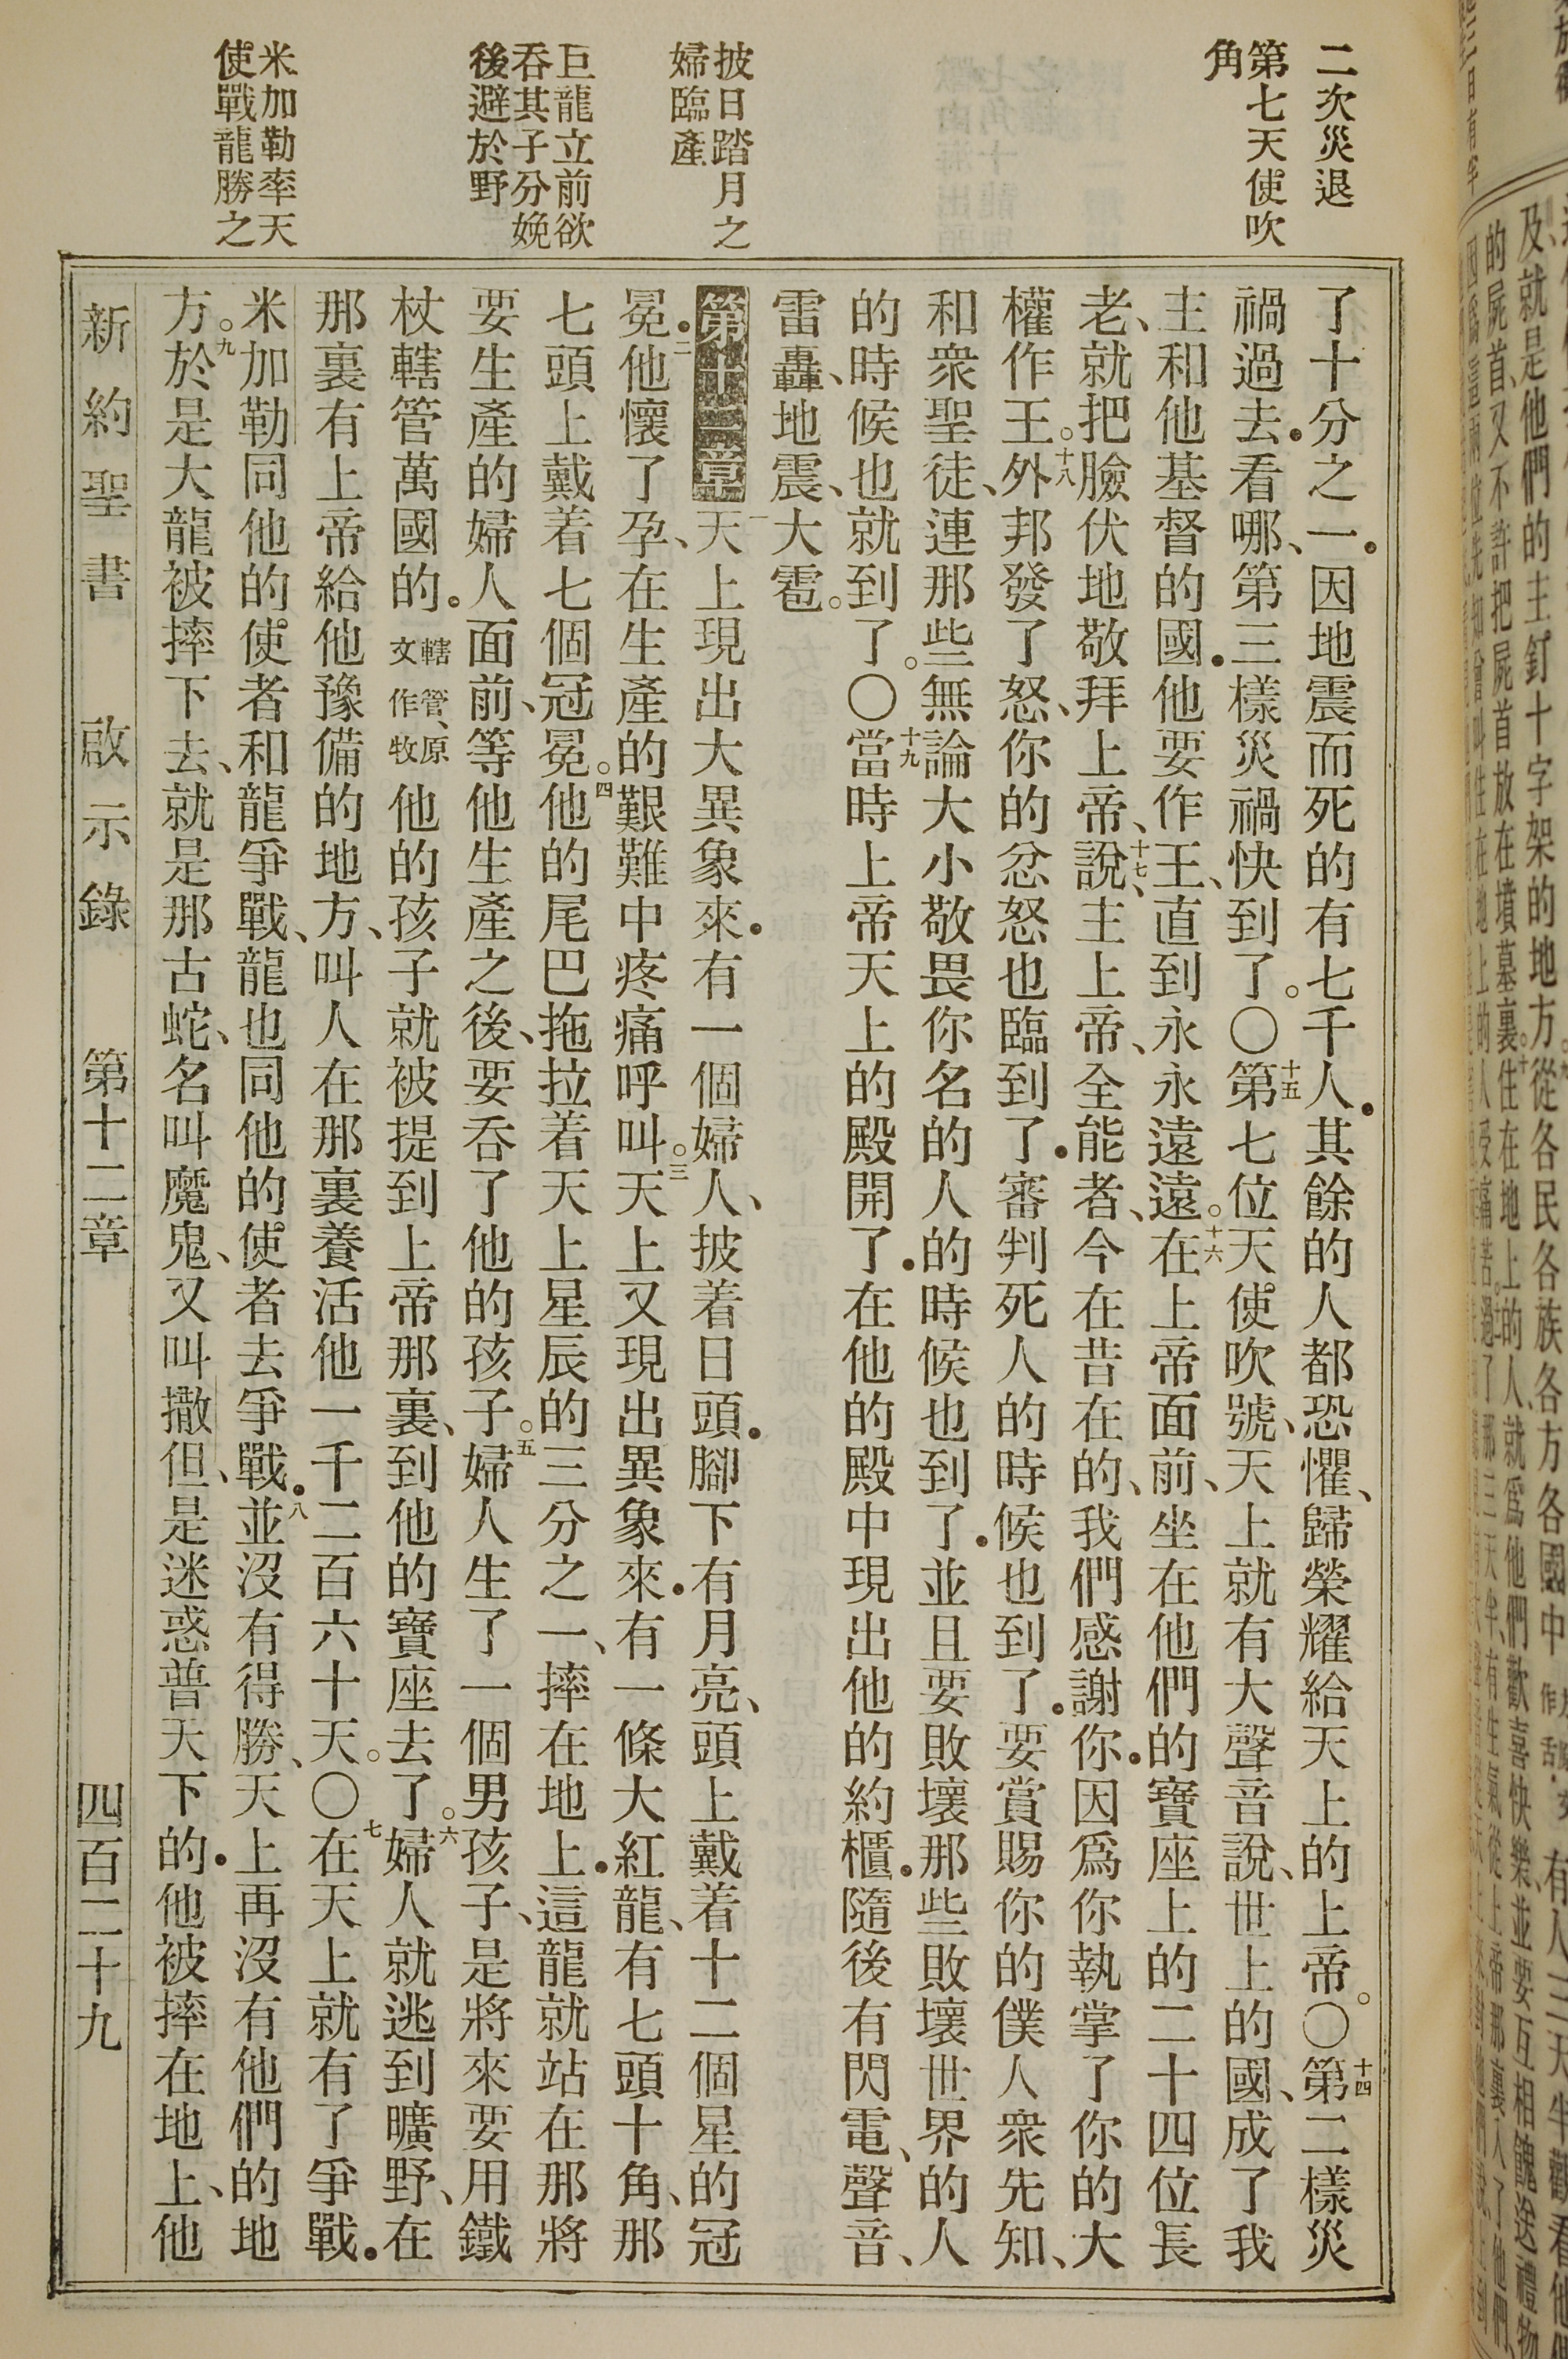 二次災退
第七天使吹
角
披日踏月之
婦臨產
巨龍立前欲
吞其子分娩
後避於野
米加勒率天
使戰龍勝之
了十分之一．因地震而死的有七千人．其餘的人都恐懼、歸榮耀給天上的上帝。〇十四第二樣災
禍過去．看哪、第三樣災禍快到了。〇十五第七位天使吹號、天上就有大聲音說、世上的國、成了我
主和他基督的國．他要作王、直到永永遠遠。十六在上帝面前、坐在他們的寶座上的二十四位長
老、就把臉伏地敬拜上帝、十七說、主上帝、全能者、今在昔在的、我們感謝你．因爲你執掌了你的大
權作王。十八外邦發了怒、你的忿怒也臨到了．審判死人的時候也到了．要賞賜你的僕人衆先知、
和衆聖徒、連那些無論大小敬畏你名的人的時候也到了．並且要敗壞那些敗壞世界的人
的時候也就到了。〇十九當時上帝天上的殿開了．在他的殿中現出他的約櫃．隨後有閃電、聲音、
雷轟、地震、大雹。
第十二章 一天上現出大異象來．有一個婦人、披着日頭．腳下有月亮、頭上戴着十二個星的冠
冕．二他懷了孕、在生產的艱難中疼痛呼叫。三天上又現出異象來．有一條大紅龍、有七頭十角、那
七頭上戴着七個冠冕。四他的尾巴拖拉着天上星辰的三分之一、摔在地上．這龍就站在那將
要生產的婦人面前、等他生產之後、要吞了他的孩子。五婦人生了一個男孩子、是將來要用鐵
杖轄管萬國的．轄管、原文作牧他的孩子就被提到上帝那裏、到他的寶座去了。六婦人就逃到曠野、在
那裏有上帝給他豫備的地方、叫人在那裏養活他一千二百六十天。〇七在天上就有了爭戰．
米加勒同他的使者和龍爭戰、龍也同他的使者去爭戰．八並沒有得勝、天上再沒有他們的地
方。九於是大龍被摔下去、就是那古蛇、名叫魔鬼、又叫撒但、是迷惑普天下的．他被摔在地上、他
新約聖書　啟示錄　第十二章　四百二十九